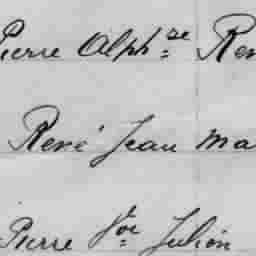 Pierre Alph.se Ren
René Jean Ma
Pierre Jor Julien